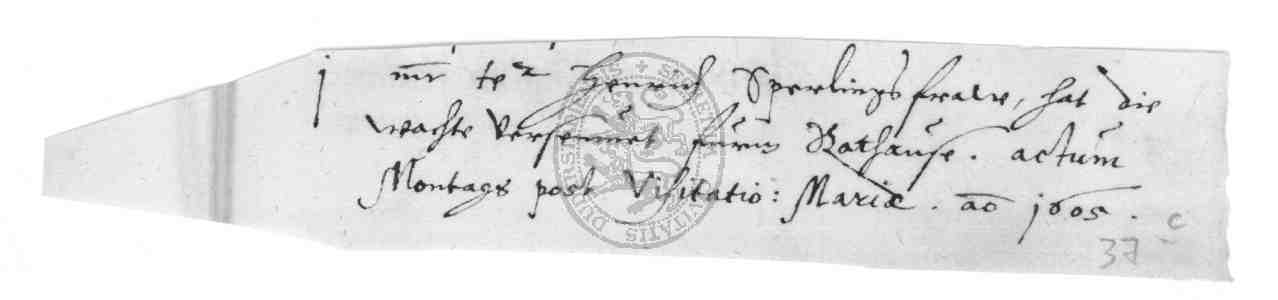 j mr te Henrich Sperlings fraw, hat die
wachte verseumet fürm Rathause. actum
Montags post Visitatio: Mariæ. ao 1605.
37 c